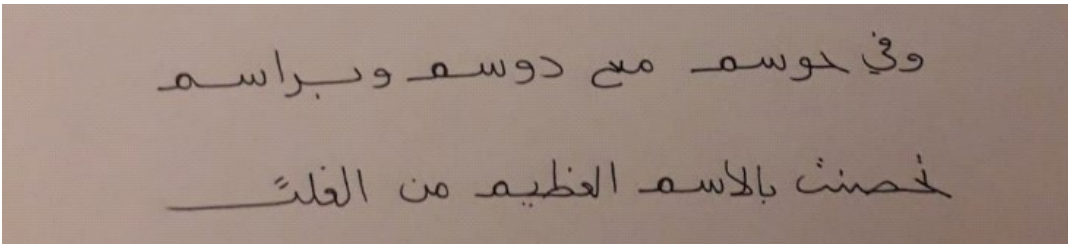 وفي حوسم مع دوسم وبراسم
تحصنت بالاسم العظيم من الغلت